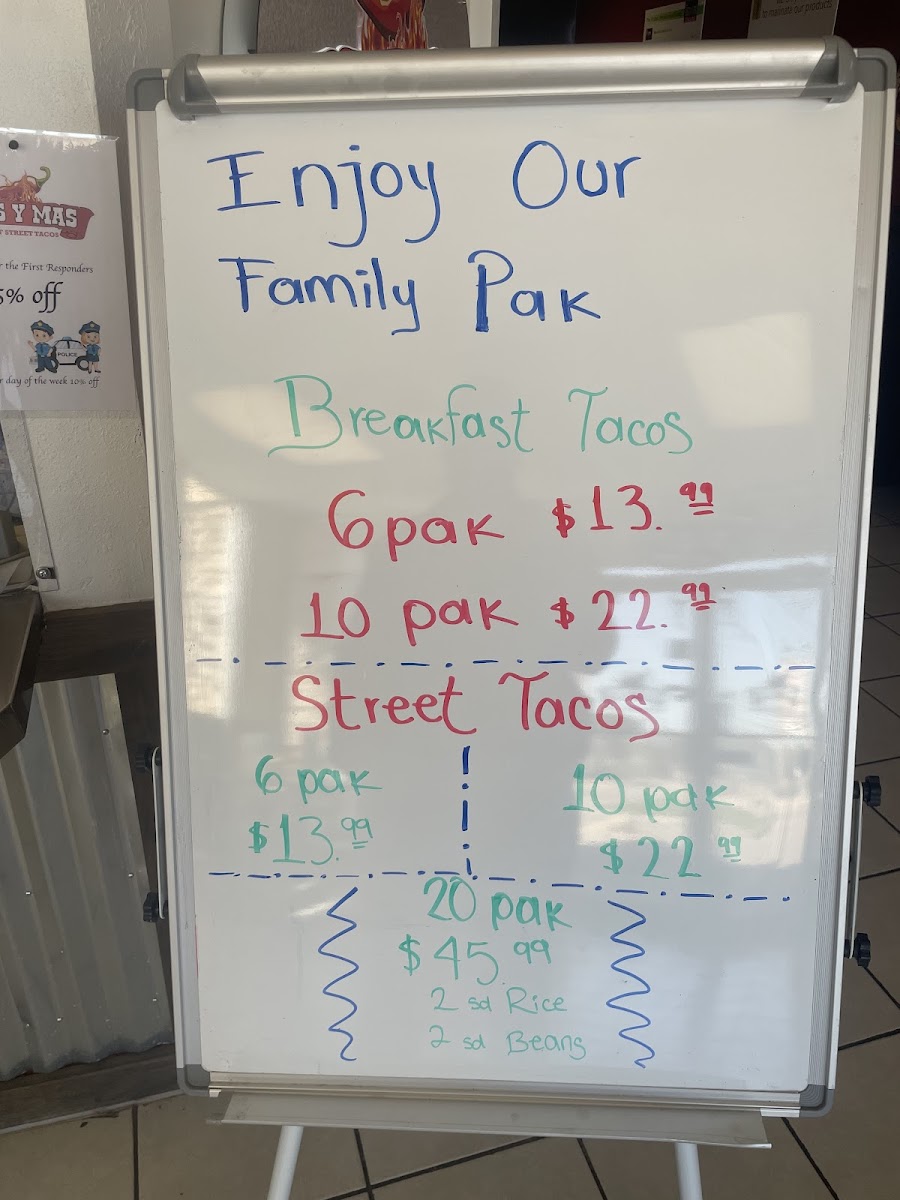 Enjoy Our
Family Pak
Breakfast Tacos
6 pak $13.99
10 pak $22.99
Street Tacos
6 pak
$13.99
10 pak
$22 99
20 pak
$45 99
2 sd Rice
2 sd Beans
Y MAS
STREET TACOS
the First Responders
5% off
POLICE
day of the week 10% off
to maintain our products